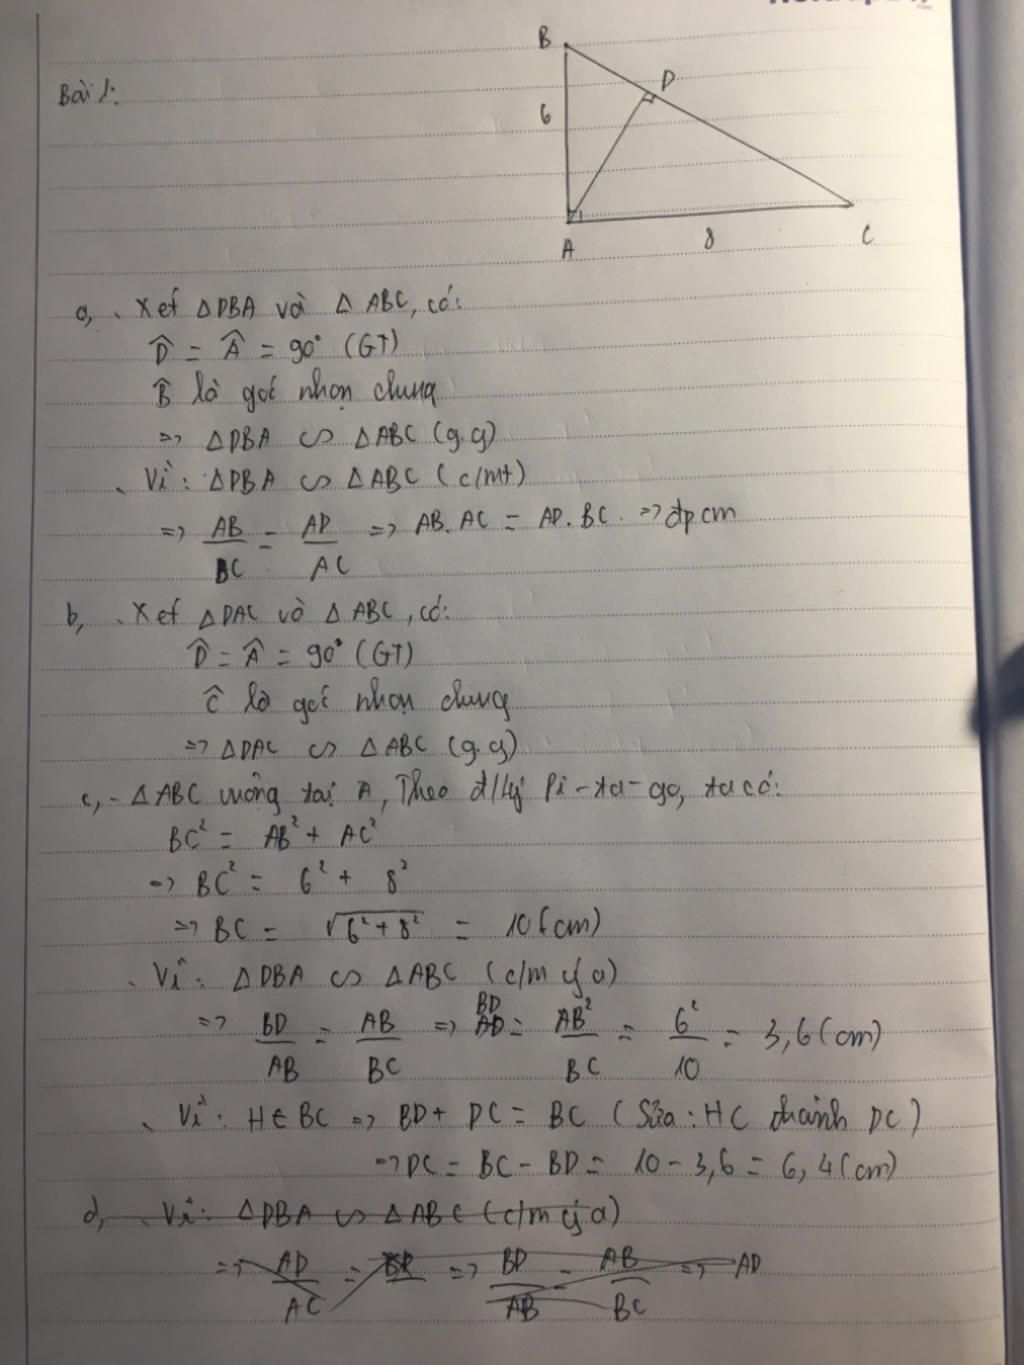 B
D
Bài 1:
6
A
8
C
a, . Xét ΔDBA và Δ ABC, có:
D̂ = Â = 90° (GT)
B̂ là goé nhọn chung
=> ΔDBA ∽ ΔABC (g.g)
. Vì: ΔDBA ∽ ΔABC (c/mt)
=> AB/BC = AD/AC => AB. AC = AD. BC. => đpcm
b, . Xét ΔDAC và Δ ABC, có:
D̂ = Â = 90° (GT)
Ĉ là goé nhọn chung
=> ΔDAC ∽ ΔABC (g.g)
c, - ΔABC vuông tại A, Theo đ/lý Pi-ta-go, ta có:
BC² = AB² + AC²
=> BC² = 6² + 8²
=> BC = √6²+8² = 10 (cm)
. Vì: ΔDBA ∽ ΔABC (c/m ý a)
=> BD/AB = AB/BC => BD = AB²/BC = 6²/10 = 3,6 (cm)
. Vì: H ∈ BC => BD + DC = BC (Sửa: HC thành DC)
=> DC = BC - BD = 10 - 3,6 = 6,4 (cm)
d, . Vì: ΔDBA ∽ ΔABC (c/m ý a)
=> AD/AC = => BD/AB = AB/BC => AD